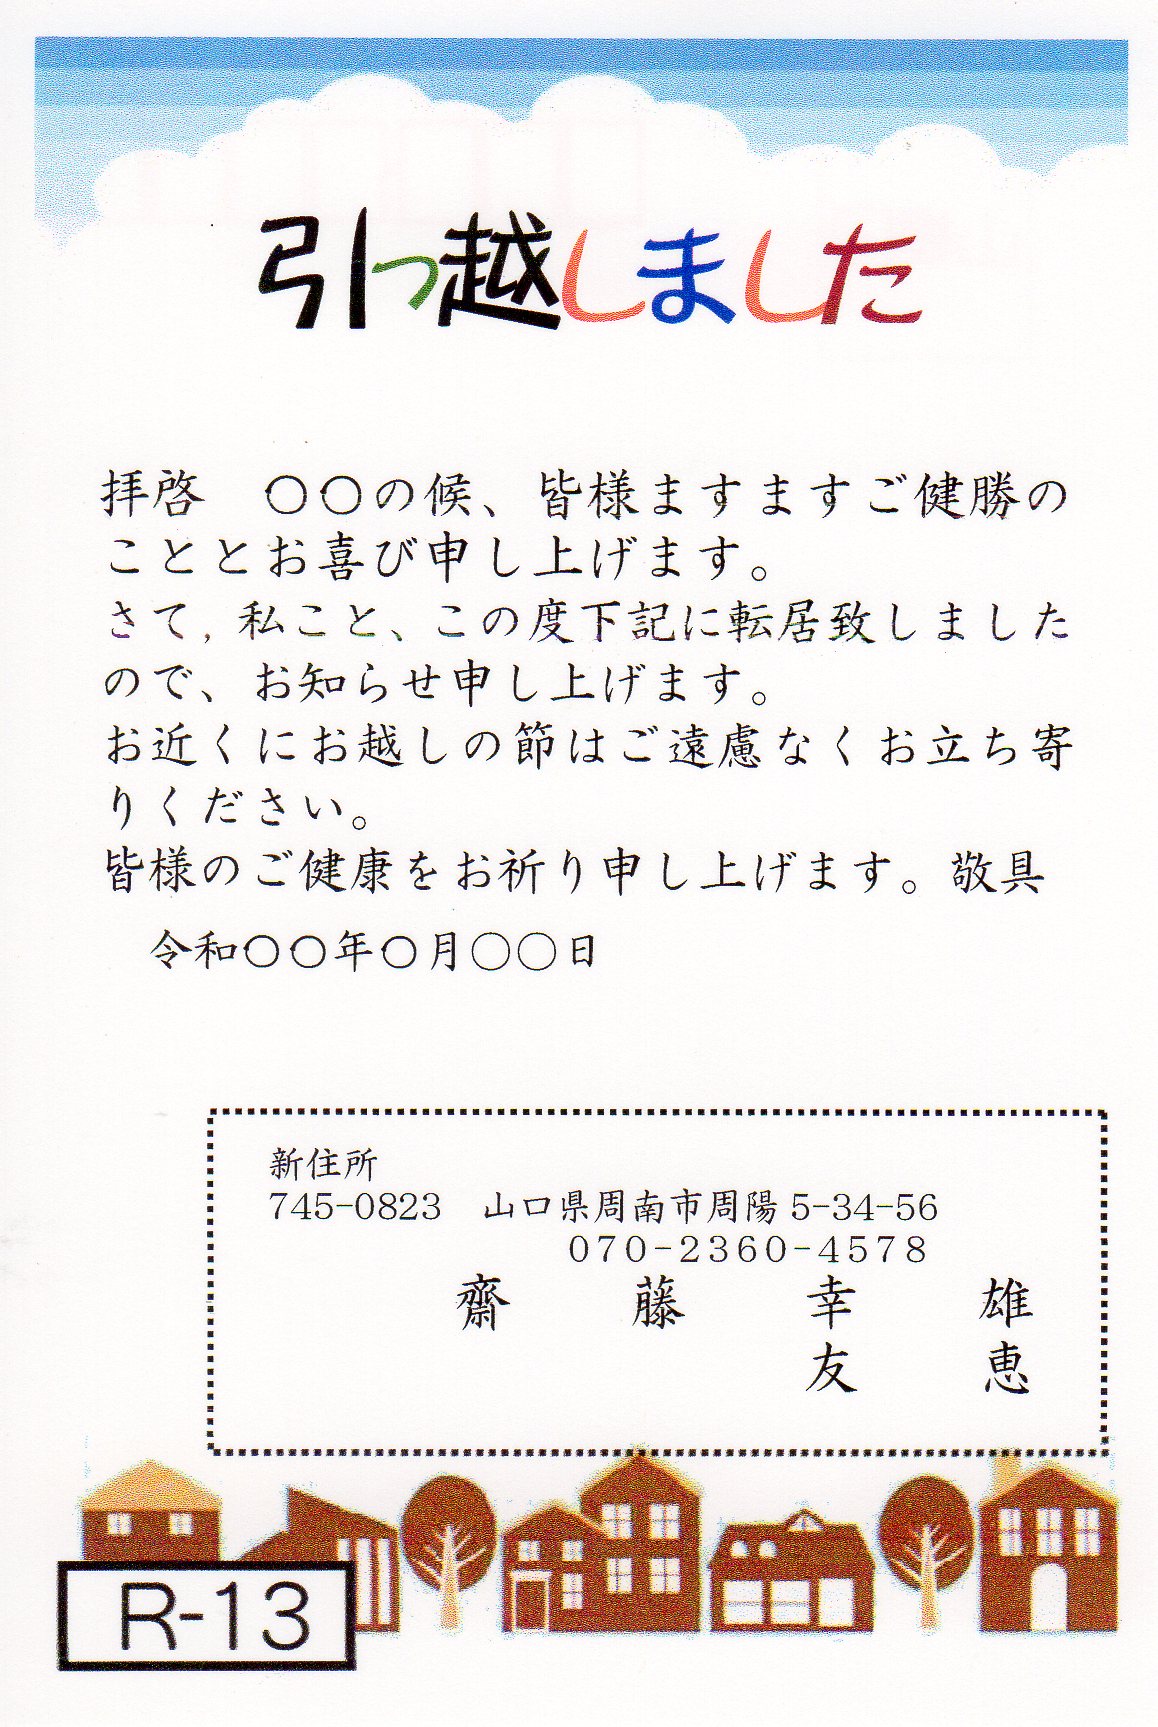 引っ越しました
拝啓　〇〇の候、皆様ますますご健勝の
こととお喜び申し上げます。
さて,私こと、この度下記に転居致しました
ので、お知らせ申し上げます。
お近くにお越しの節はご遠慮なくお立ち寄
りください。
皆様のご健康をお祈り申し上げます。敬具
令和〇〇年〇月〇〇日
新住所
745-0823　山口県周南市周陽5-34-56
070-2360-4578
齋　藤　幸　雄
友　恵
R-13